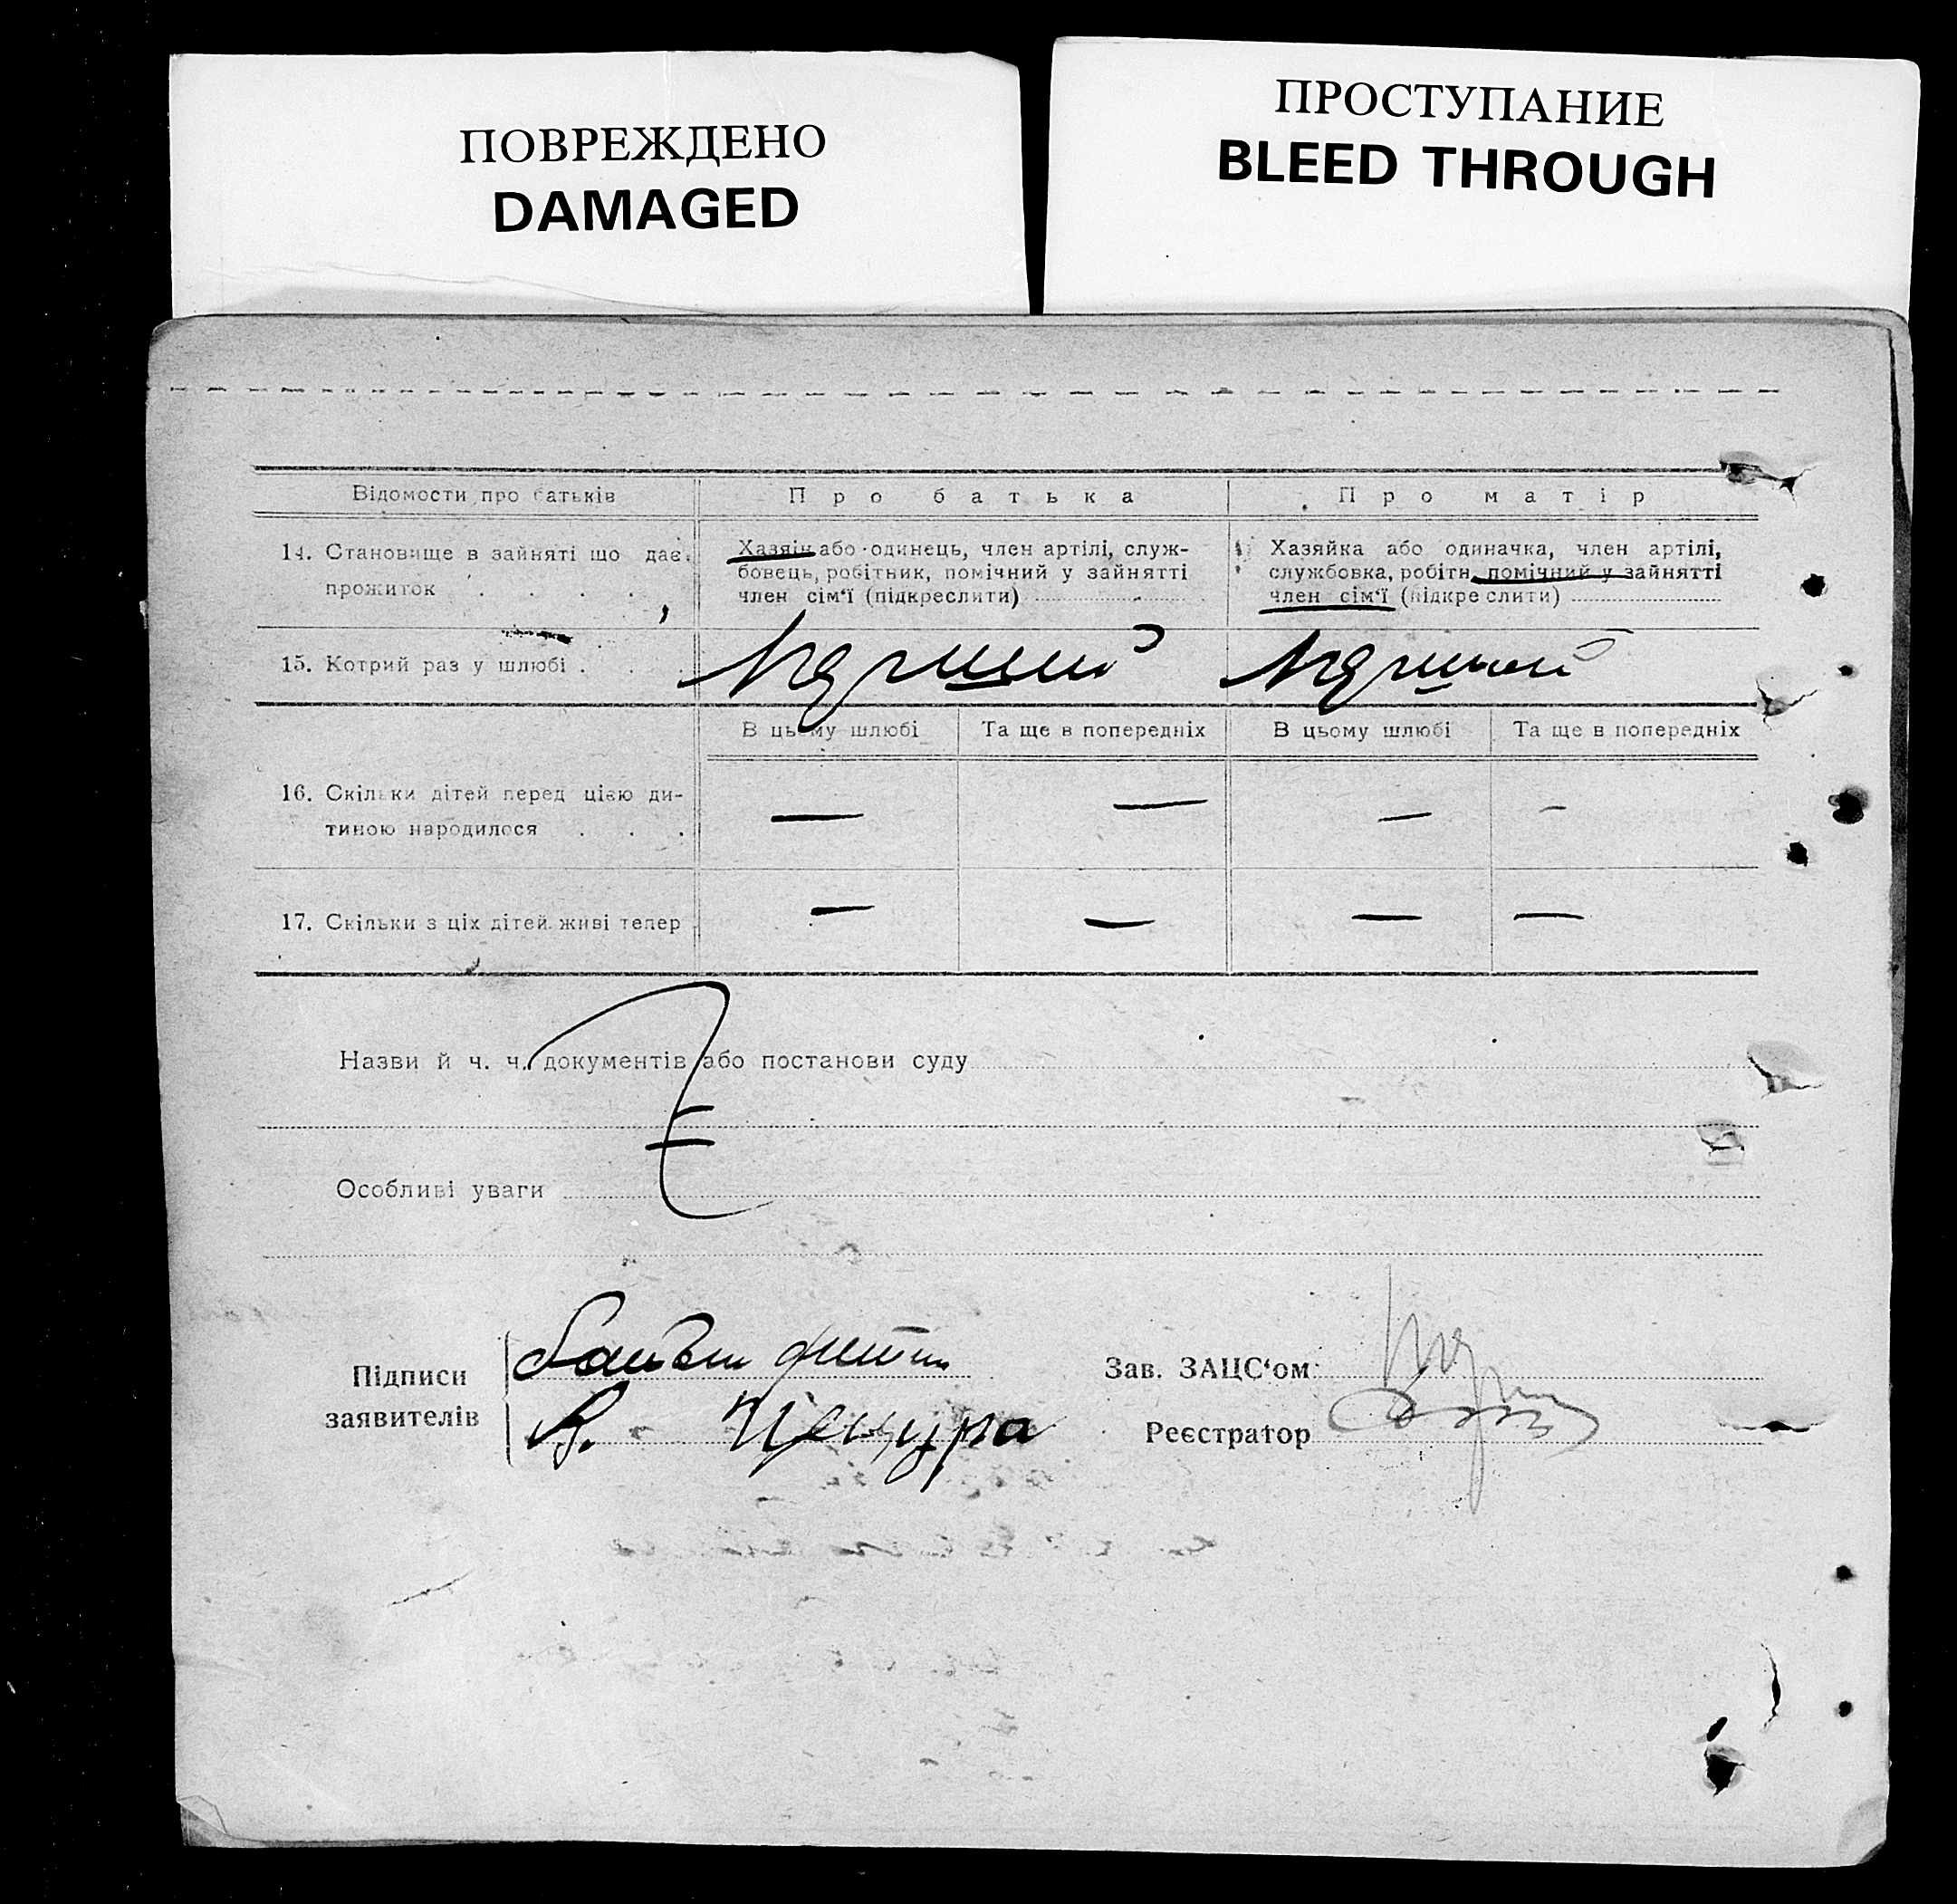 ПОВРЕЖДЕНО
DAMAGED
ПРОСТУПАНИЕ
BLEED THROUGH
Відомости про батьків
Про батька
Про матір
14. Становище в зайняті що дає
прожиток . . . .
Хазяїн або одинець, член артілі, служ-
бовець, робітник, помічний у зайнятті
член сім‘ї (підкреслити)
Хазяйка або одиначка, член артілі,
службовка, робітн. помічний у зайнятті
член сім‘ї (підкреслити)
15. Котрий раз у шлюбі . . .
В цьому шлюбі
Та ще в попередніх
В цьому шлюбі
Та ще в попередніх
16. Скільки дітей перед цією ди-
тиною народилося . . .
— — — —
17. Скільки з ціх дітей живі тепер
— — — —
Назви й ч. ч. документів або постанови суду
Особливі уваги
Підписи
заявителів
Батьки дитини
Цецура
Зав. ЗАЦС‘ом
Реєстратор